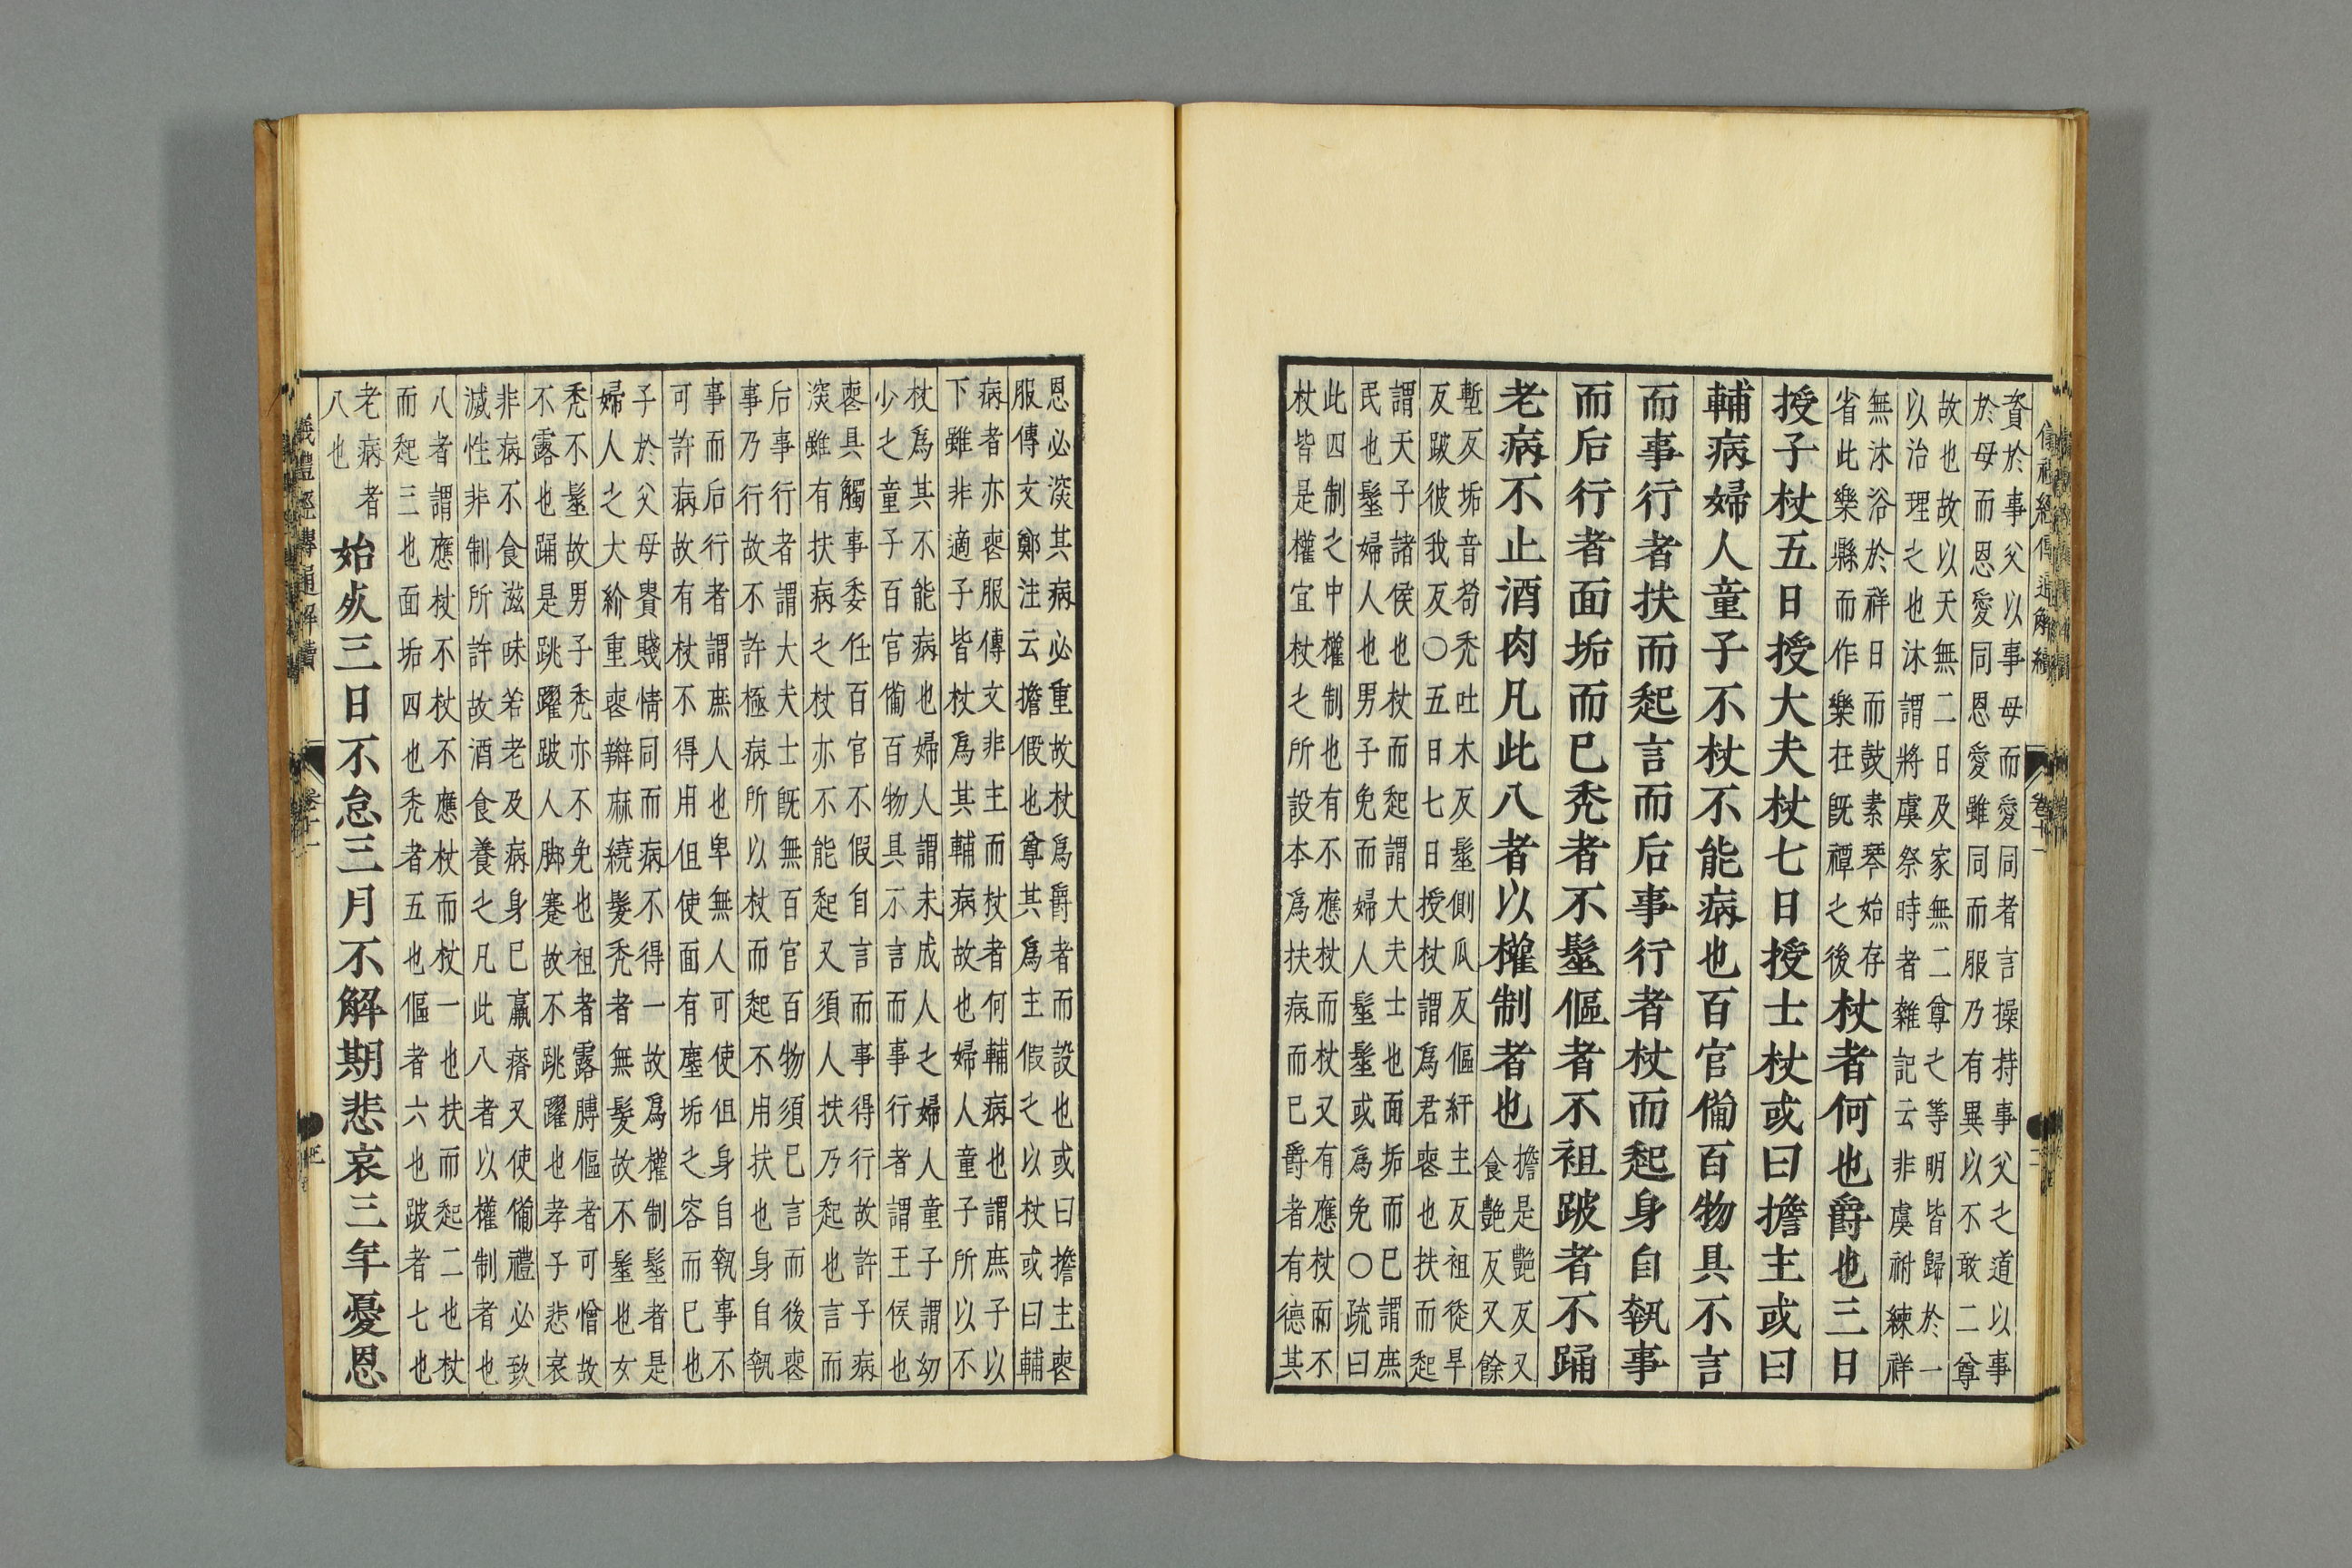 資於事父以事母而愛同者言操持事父之道以事
於母而恩愛同恩愛雖同而服乃有異以不敢二尊
故也故以天無二日及家無二尊之等明皆歸於一
以治理之也沐謂將虞祭時者雜記云非虞祔練祥
無沐浴於祥日而鼓素琴始存
省此樂縣而作樂在既禫之後
杖者何也爵也三日
授子杖五日授大夫杖七日授士杖或曰擔主或曰
輔病婦人童子不杖不能病也百官備百物具不言
而事行者扶而起言而后事行者杖而起身自執事
而后行者面垢而已禿者不髽傴者不袒跛者不踊
老病不止酒肉凡此八者以權制者也
擔是豔反又
食豔反又餘
塹反垢音苟禿吐木反髽側瓜反傴紆主反袒徒旱
反跛彼我反○五日七日授杖謂爲君喪也扶而起
謂天子諸侯也杖而起謂大夫士也面垢而已謂庶
民也髽婦人也男子免而婦人髽髽或爲免○疏曰
此四制之中權制也有不應杖而杖又有應杖而不
杖皆是權宜杖之所設本爲扶病而已爵者有德其
恩必深其病必重故杖爲爵者而設也或曰擔主喪
服傳文鄭注云擔假也尊其爲主假之以杖或曰輔
病者亦喪服傳文非主而杖者何輔病也謂庶子以
下雖非適子皆杖爲其輔病故也婦人童子所以不
杖爲其不能病也婦人謂未成人之婦人童子謂幼
少之童子百官備百物具不言而事行者謂王侯也
喪具觸事委任百官不假自言而事得行故許子病
深雖有扶病之杖亦不能起又須人扶乃起也言而
后事行者謂大夫士既無百官百物須已言而後喪
事乃行故不許極病所以杖而起不用扶也身自執
事而后行者謂庶人也卑無人可使但身自執事不
可許病故有杖不得用但使面有塵垢之容而已也
子於父母貴賤情同而病不得一故爲權制髽者是
婦人之大紒重喪辮麻繞髮禿者無髮故不髽也女
禿不髽故男子禿亦不免也袒者露膊傴者可憎故
不露也踊是跳躍跛人脚蹇故不跳躍也孝子悲哀
非病不食滋味若老及病身已羸瘠又使備禮必致
滅性非制所許故酒食養之凡此八者以權制者也
八者謂應杖不杖不應杖而杖一也扶而起二也杖
而起三也面垢四也禿者五也傴者六也跛者七也
老病者
八也
始死三日不怠三月不解期悲哀三年憂恩
儀禮經傳通解續 卷十一